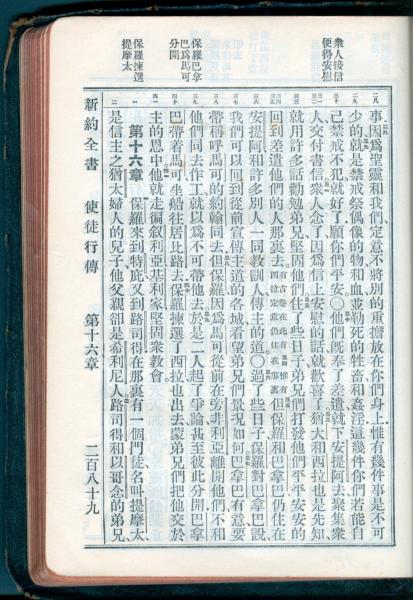 衆人接信
便得安慰
保羅巴拿
巴爲馬可
分開
保羅揀選
提摩太
事因爲聖靈和我們定意不將別的重擔放在你們身上惟有幾件事是不可
少的就是禁戒祭偶像的物和血並勒死的牲畜和姦淫這幾件你們若能自
己禁戒不犯就好了願你們平安○他們既奉了差遣就下安提阿去聚集衆
人交付書信衆人念了因爲信上安慰的話就歡喜了猶大和西拉也是先知
就用許多話勸勉弟兄堅固他們住了些日子弟兄們打發他們平平安安的
回到差遣他們的人那裏去有古卷在此有西拉定意仍住在那裏惟有但保羅和巴拿巴仍住在
安提阿和許多別人一同教訓人傳主的道○過了些日子保羅對巴拿巴說
我們可以回到從前宣傳主道的各城看望弟兄們景況如何巴拿巴有意要
帶稱呼馬可的約翰同去但保羅因爲馬可從前在旁非利亞離開他們不和
他們同去作工就以爲不可帶他去於是二人起了爭論甚至彼此分開巴拿
巴帶着馬可坐船往居比路去保羅揀選了西拉也出去蒙弟兄們把他交於
主的恩中他就走徧叙利亞基利家堅固衆教會
第十六章 保羅來到特庇又到路司得在那裏有一個門徒名叫提摩太
是信主之猶太婦人的兒子他父親卻是希利尼人路司得和以哥念的弟兄
新約全書 使徒行傳 第十六章 二百八十九